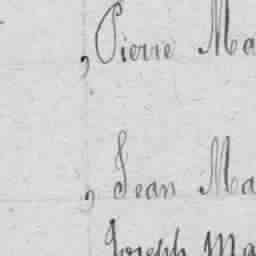 , Pierre Ma
, Jean Ma
Joseph Ma